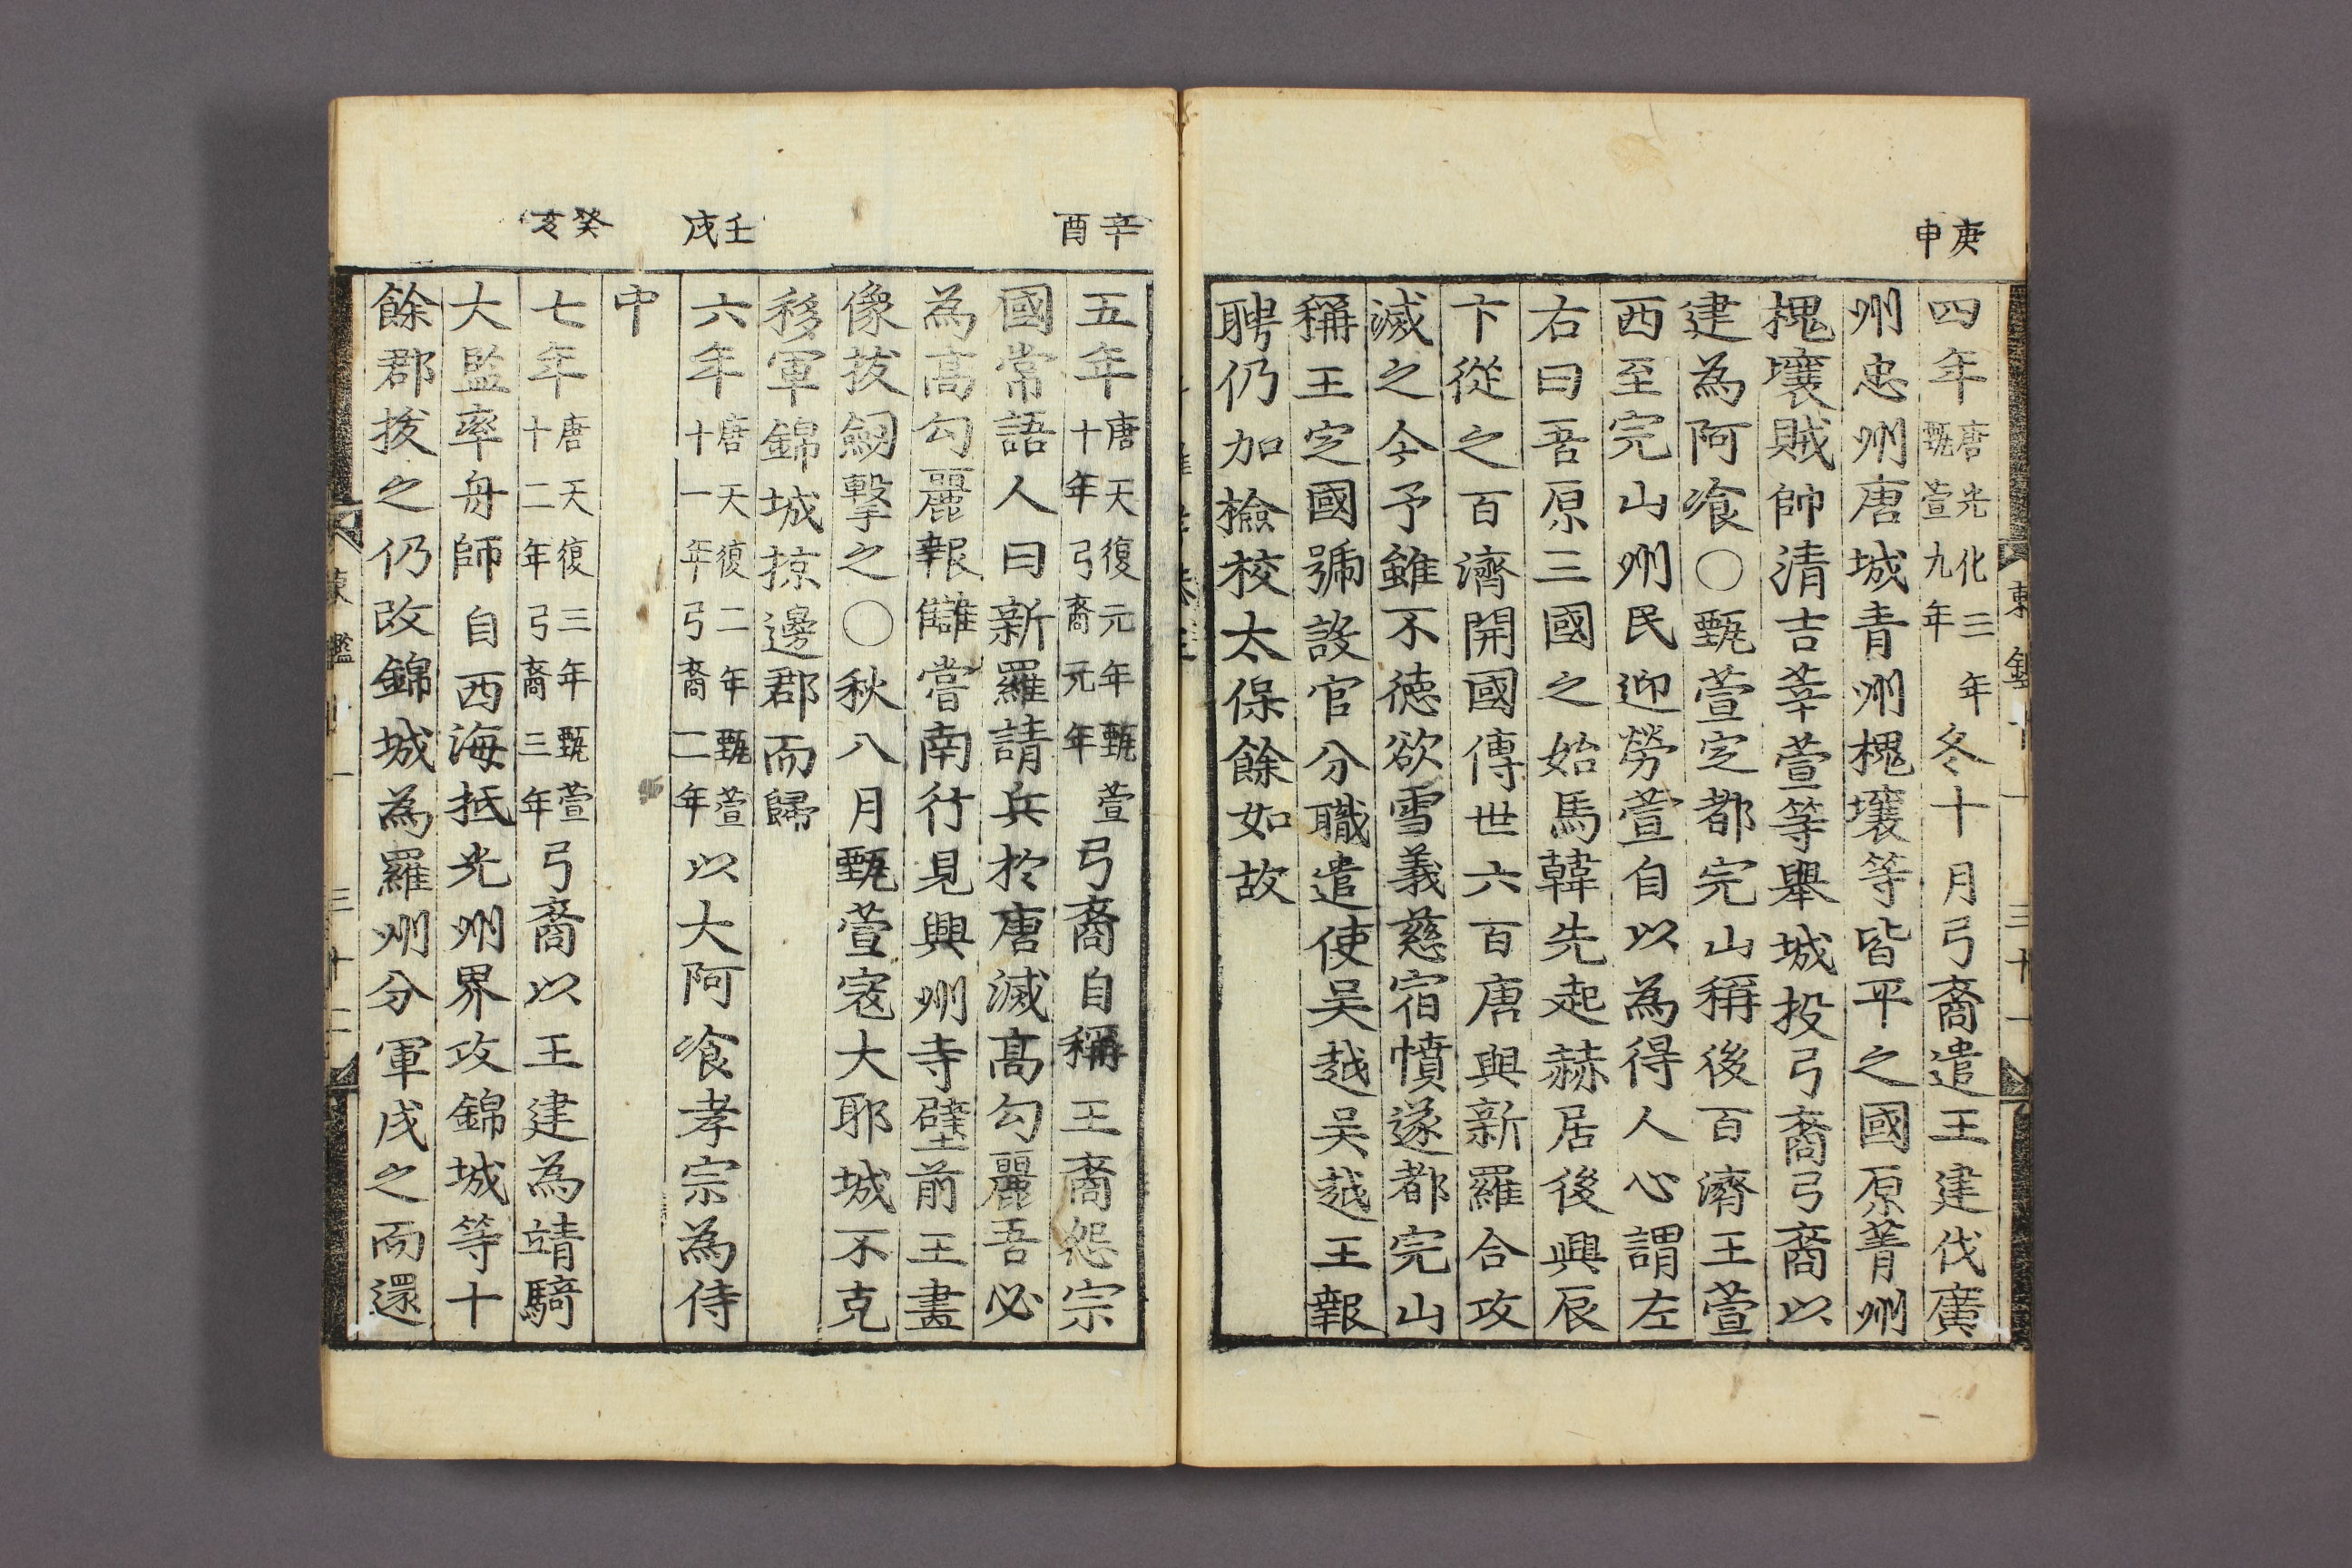 庚申
四年唐光化三年甄萱九年冬十月弓裔遣王建伐廣
州忠州唐城青州槐壤等皆平之國原菁州
槐壤賊帥清吉莘萱等舉城投弓裔弓裔以
建為阿飡○甄萱定都完山稱後百濟王萱
西至完山州民迎勞萱自以為得人心謂左
右曰吾原三國之始馬韓先起赫居後興辰
卞從之百濟開國傳世六百唐與新羅合攻
滅之今予雖不德欲雪義慈宿憤遂都完山
稱王定國號設官分職遣使吴越吴越王報
聘仍加撿校太保餘如故
辛酉
五年唐天復元年甄萱十年弓裔元年弓裔自稱王裔怨宗
國常語人曰新羅請兵於唐滅髙勾麗吾必
為高勾麗報讎嘗南行見興州寺壁前王畫
像拔劒擊之○秋八月甄萱寇大耶城不克
移軍錦城掠邊郡而歸
壬戌
六年唐天復二年甄萱十一年弓裔二年以大阿飡孝宗為侍
中
癸亥
七年唐天復三年甄萱十二年弓裔三年弓裔以王建為靖騎
大監率舟師自西海抵光州界攻錦城等十
餘郡拔之仍改錦城為羅州分軍戍之而還